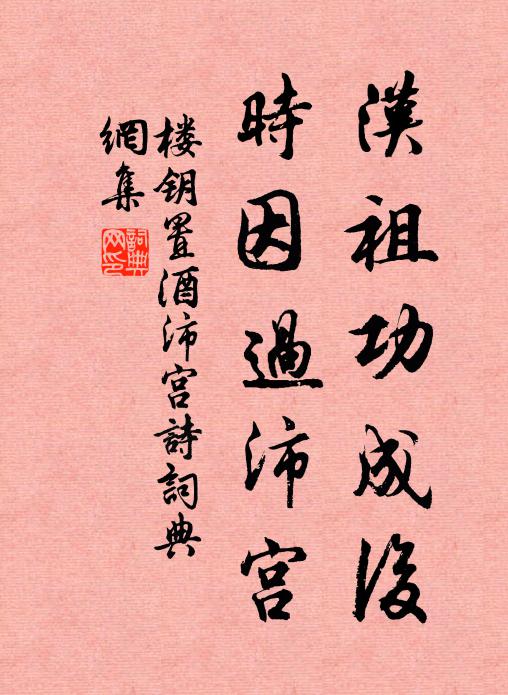 漢祖功成後
時因過沛宮
楼钥置酒沛宫詩詞典
網集
詞典网印